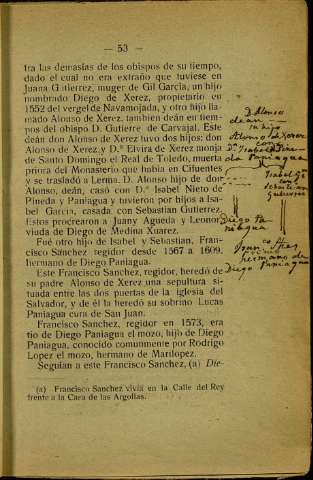 — 53 —
tra las demasías de los obispos de su tiempo,
dado el cual no era extraño que tuviese en
Juana Gutierrez, muger de Gil García, un hijo
nombrado Diego de Xerez, propietario en
1552 del vergel de Navamojada, y otro hijo lla-
mado Alonso de Xerez, tambien deán en tiem-
pos del obispo D. Gutierre de Carvajal. Este
deán don Alonso de Xerez tuvo dos hijos: don
Alonso de Xerez y D.ª Elvira de Xerez monja
de Santo Domingo el Real de Toledo, muerta
priora del Monasterio que había en Cifuentes
y se trasladó a Lerma. D. Alonso hijo de don
Alonso, deán, casó con D.ª Isabel Nieto de
Pineda y Paniagua y tuvieron por hijos a Isa-
bel García, casada con Sebastian Gutierrez.
Estos procrearon a Juany Agueda y Leonor,
viuda de Diego de Medina Xuarez.
Fué otro hijo de Isabel y Sebastian, Fran-
cisco Sanchez regidor desde 1567 a 1609,
hermano de Diego Paniagua.
Este Francisco Sanchez, regidor, heredó de
su padre Alonso de Xerez una sepultura si-
tuada entre las dos puertas de la iglesia del
Salvador, y de él la heredó su sobrino Lucas
Paniagua cura de San Juan.
Francisco Sanchez, regidor en 1573, era
tio de Diego Paniagua el mozo, hijo de Diego
Paniagua, conocido comunmente por Rodrigo
Lopez el mozo, hermano de Marilopez.
Seguían a este Francisco Sanchez, (a) Die-
(a) Francisco Sanchez vivía en la Calle del Rey
frente a la Casa de las Argollas.
D. Alonso
deán
su hijo
Alonso de Xerez
con
D.ª Isabel
de Paniagua
Isabel
con
Sebastian
Gutierrez
Diego Pa
niagua
hermano de
Diego Paniagua